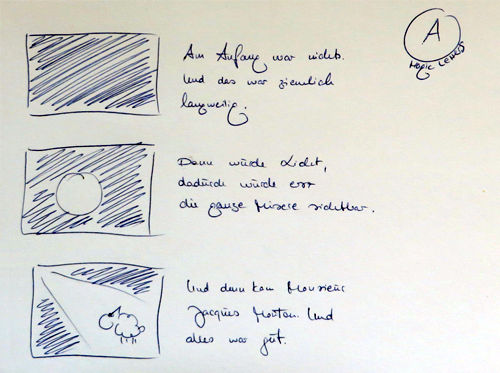 Am Anfang war nichts.
Und das war ziemlich
langweilig.
Dann würde Licht,
dadurch würde erst
die ganze Misere sichtbar.
Und dann kam Monsieur
Jacques Mouton. Und
alles war gut.
A
Magic Letters